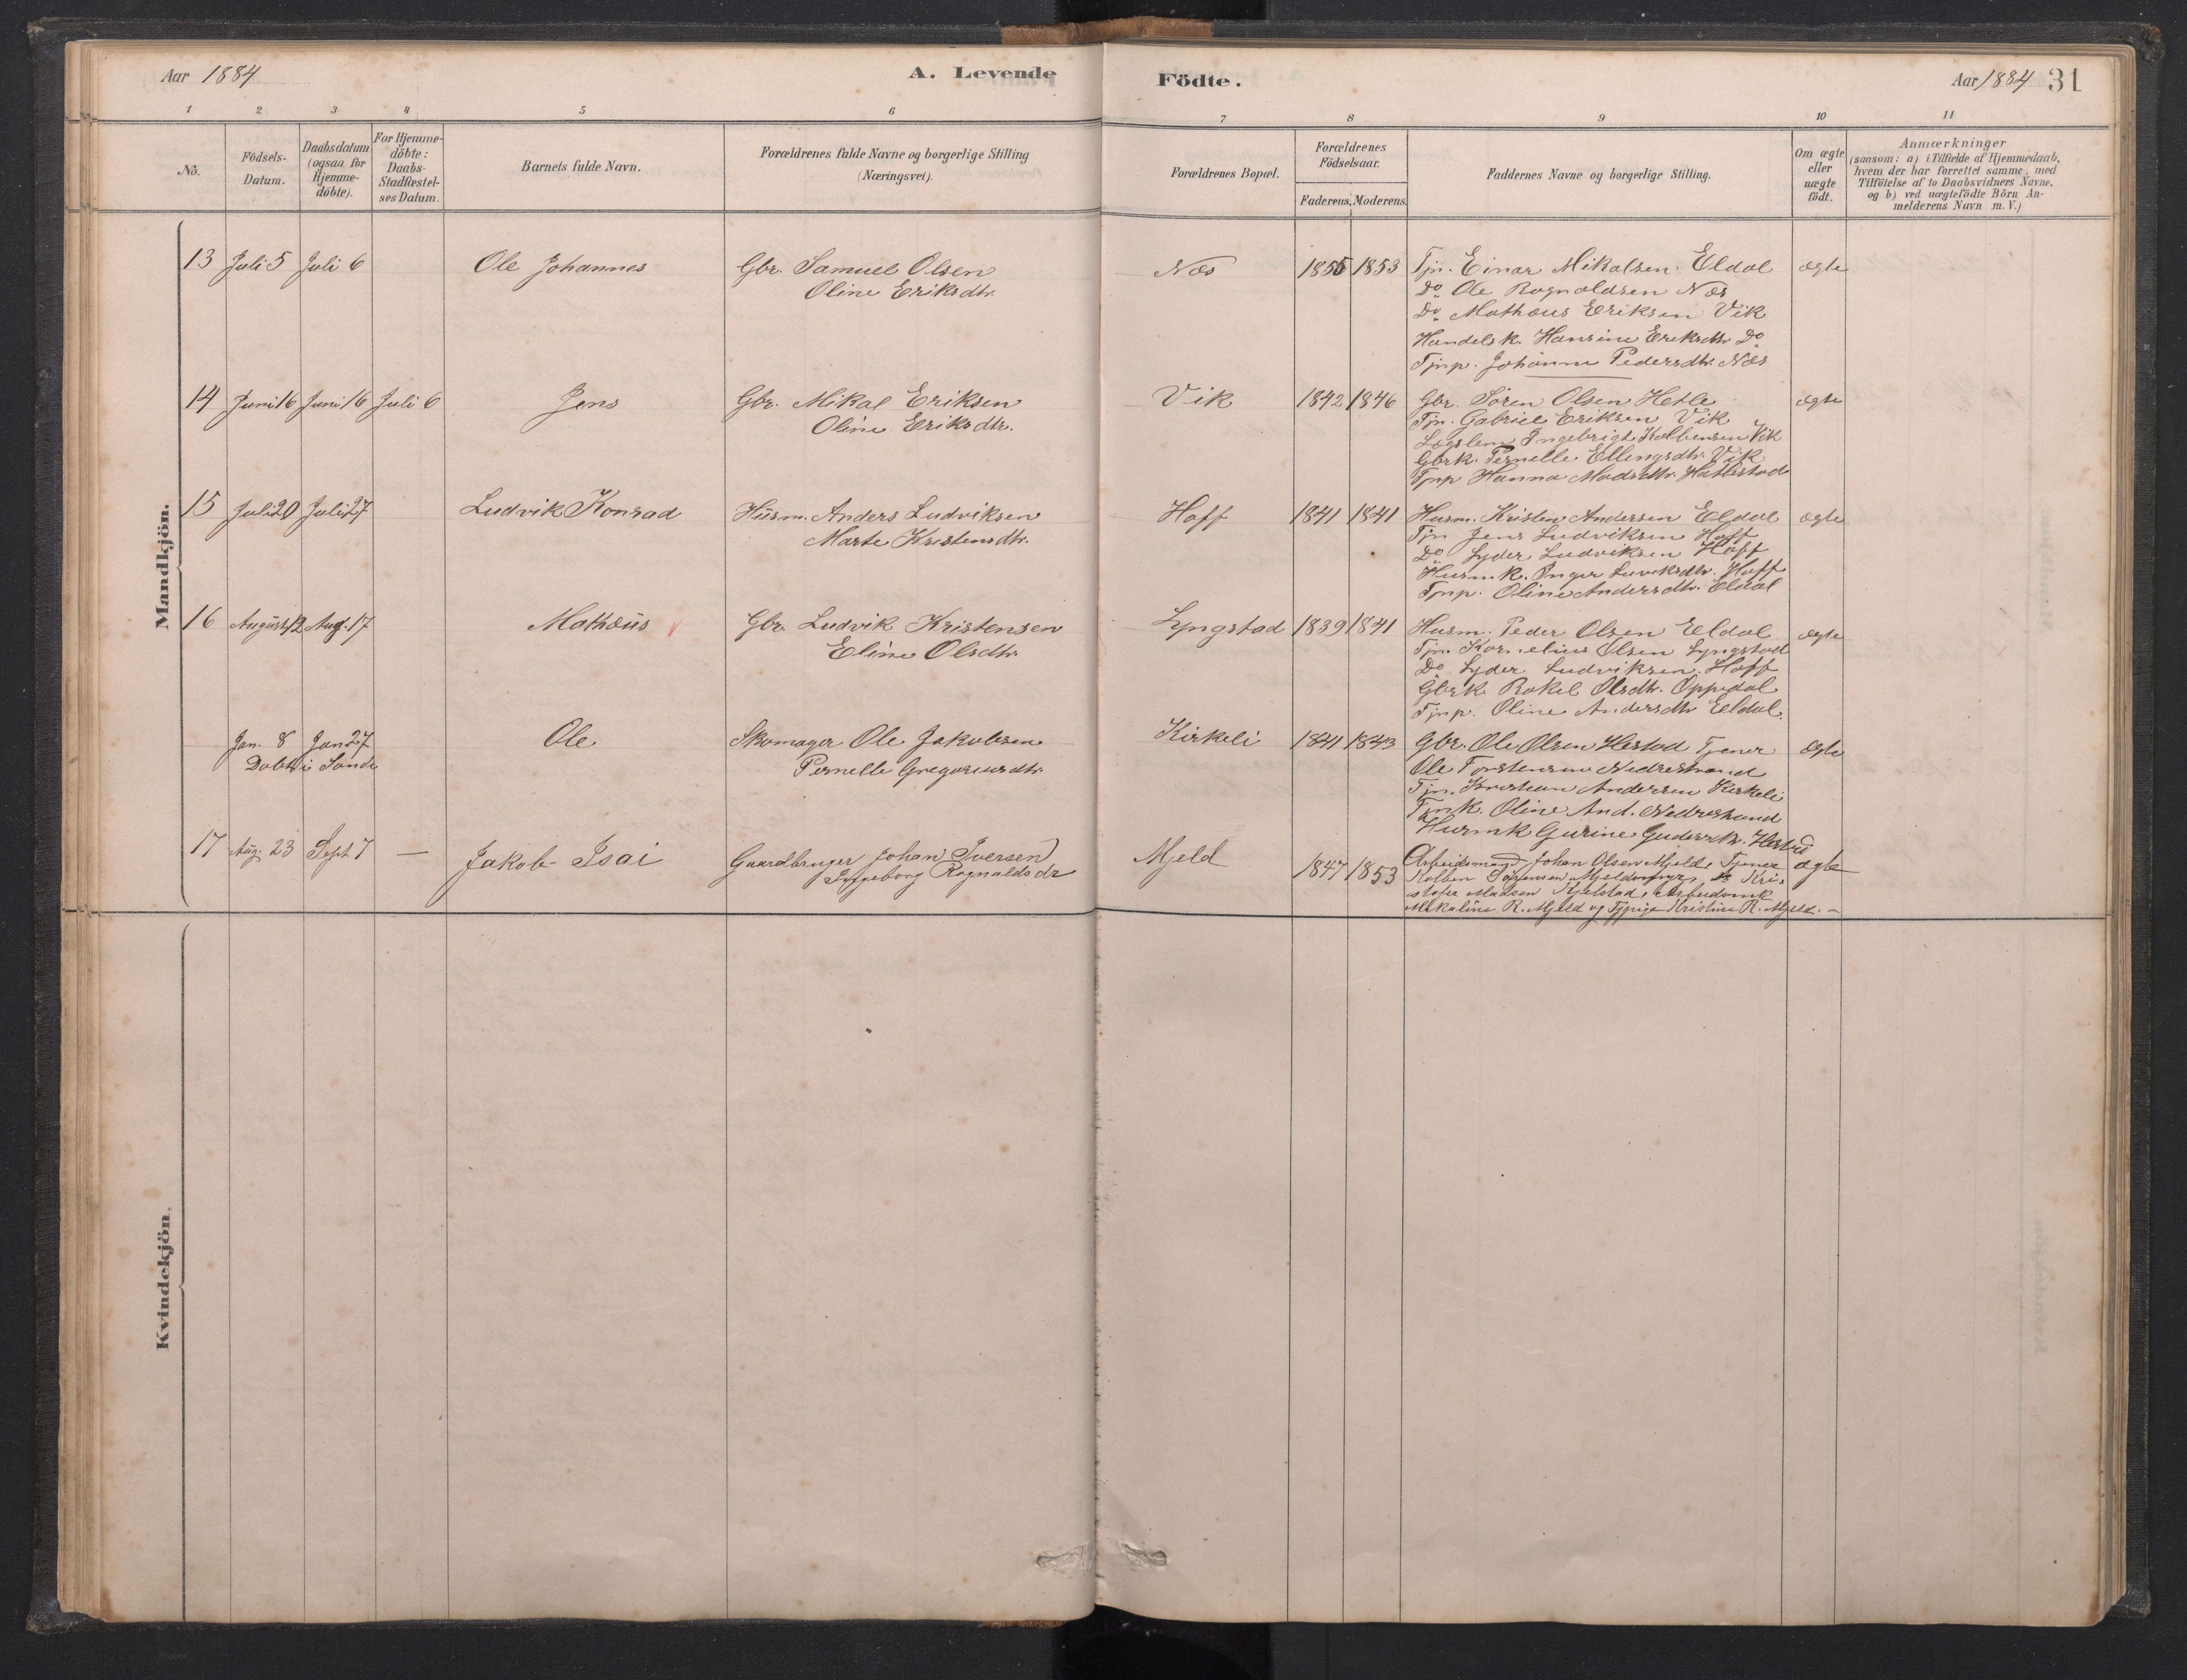 Aar 1884
A. Levende
Födte.
Aar 1884 31
1 2 3 4 5 6 7 8 9 10 11
No.
Födsels-Datum.
Daabsdatum (ogsaa for Hjemme-döbte).
For Hjemme-döbte: Daabs-Stadfæstel-ses Datum.
Barnets fulde Navn.
Forældrenes fulde Navne og borgerlige Stilling
(Næringsvei).
Forældrenes Bopæl.
Forældrenes Födselsaar.
Faderens. Moderens.
Faddernes Navne og borgerlige Stilling.
Om ægte eller uægte födt.
Anmærkninger
(saasom: a) i Tilfælde af Hjemmedaab,
hvem der har forrettet samme, med
Tilföielse af to Daabsvidners Navne,
og b) ved uægtefödte Börn An-
melderens Navn m. V.)
Mandkjön.
13 Juli 5 Juli 6 Ole Johannes Gbr. Samuel Olsen Næs 1855 1853 Tjn. Einar Mikalsen Eldal ægte
Oline Eriksdtr. Do Ole Rognaldsen Næs
Do Mathæus Eriksen Vik
Handelsk. Hansine Eriksdtr Do
Tjnp. Johanne Pedersdtr. Næs
14 Juni 16 Juni 16 Juli 6 Jens Gbr. Mikal Eriksen Vik 1842 1846 Gbr. Sören Olsen Hetle ægte
Oline Eriksdtr. Tjn. Gabriel Eriksen Vik
Lægslem Ingebrigt Kolbensen Vik
Gbrk. Pernelle Ellingsdtr. Vik
Tjnp Hanna Madsdtr. Hatlestad
15 Juli 20 Juli 27 Ludvik Konrad Husm. Anders Ludviksen Hoff 1841 1841 Husm. Kristen Andersen Eldal ægte
Marte Kristensdtr. Tjn Jens Ludviksen Hoff
Do Lyder Ludviksen Hoff
Husmk. Inger Luviksdtr. Hoff
Tjnp. Oline Andersdtr. Eldal
16 August 12 Aug. 17 Mathæus Gbr. Ludvik Kristensen Lyngstad 1839 1841 Husm. Peder Olsen Eldal ægte
Eline Olsdtr. Tjn. Kornelius Olsen Lyngstad
Do Lyder Ludviksen Hoff
Gbrk Rakel Olsdtr. Oppedal
Tjnp. Oline Andersdtr Eldal.
Jan. 8 Jan 27 Ole Skomager Ole Jakobsen Kirkeli 1841 1843 Gbr. Ole Olsen Hestad Tjener ægte
Döbt i Sande Pernelle Gregoriusdtr. Ole Torstensen Nedrestrand
Tjn. Kristian Andersen Kirkeli
Tjnk. Oline And. Nedrestrand
Husmk Gurine Hestad
17 Aug. 23 Sept 7 — Jakob Isai Gaardbruger Johan Iversen Mjeld 1847 1853 Arbeidsmand Johan Olsen Mjeld, Tjener ægte
Ingeborg Rognaldsdr Kolben Sörensen Kri-
stofer Madsen Kjelstad, Arbeidsmk
Mikaline R. Mjeld og Tjpige Kristine R. Mjeld. –
Kvindekjön.